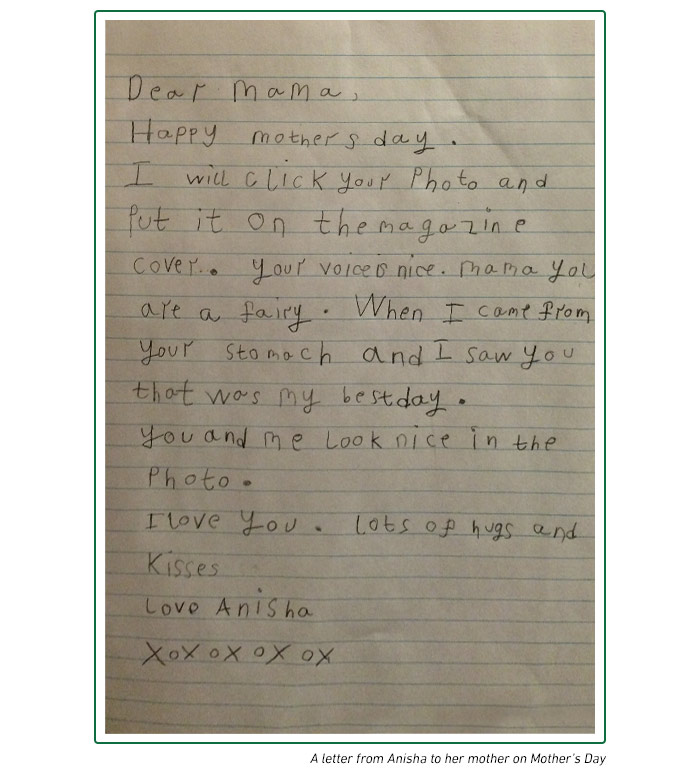 Dear Mama,
Happy mothers day.
I will click your Photo and
Put it on the magazine
cover.. Your voice is nice. Mama you
are a fairy. When I came from
your stomach and I saw you
that was my bestday.
You and me Look nice in the
Photo.
I love you. Lots of hugs and
Kisses
Love Anisha
XoX oX oX oX
A letter from Anisha to her mother on Mother's Day